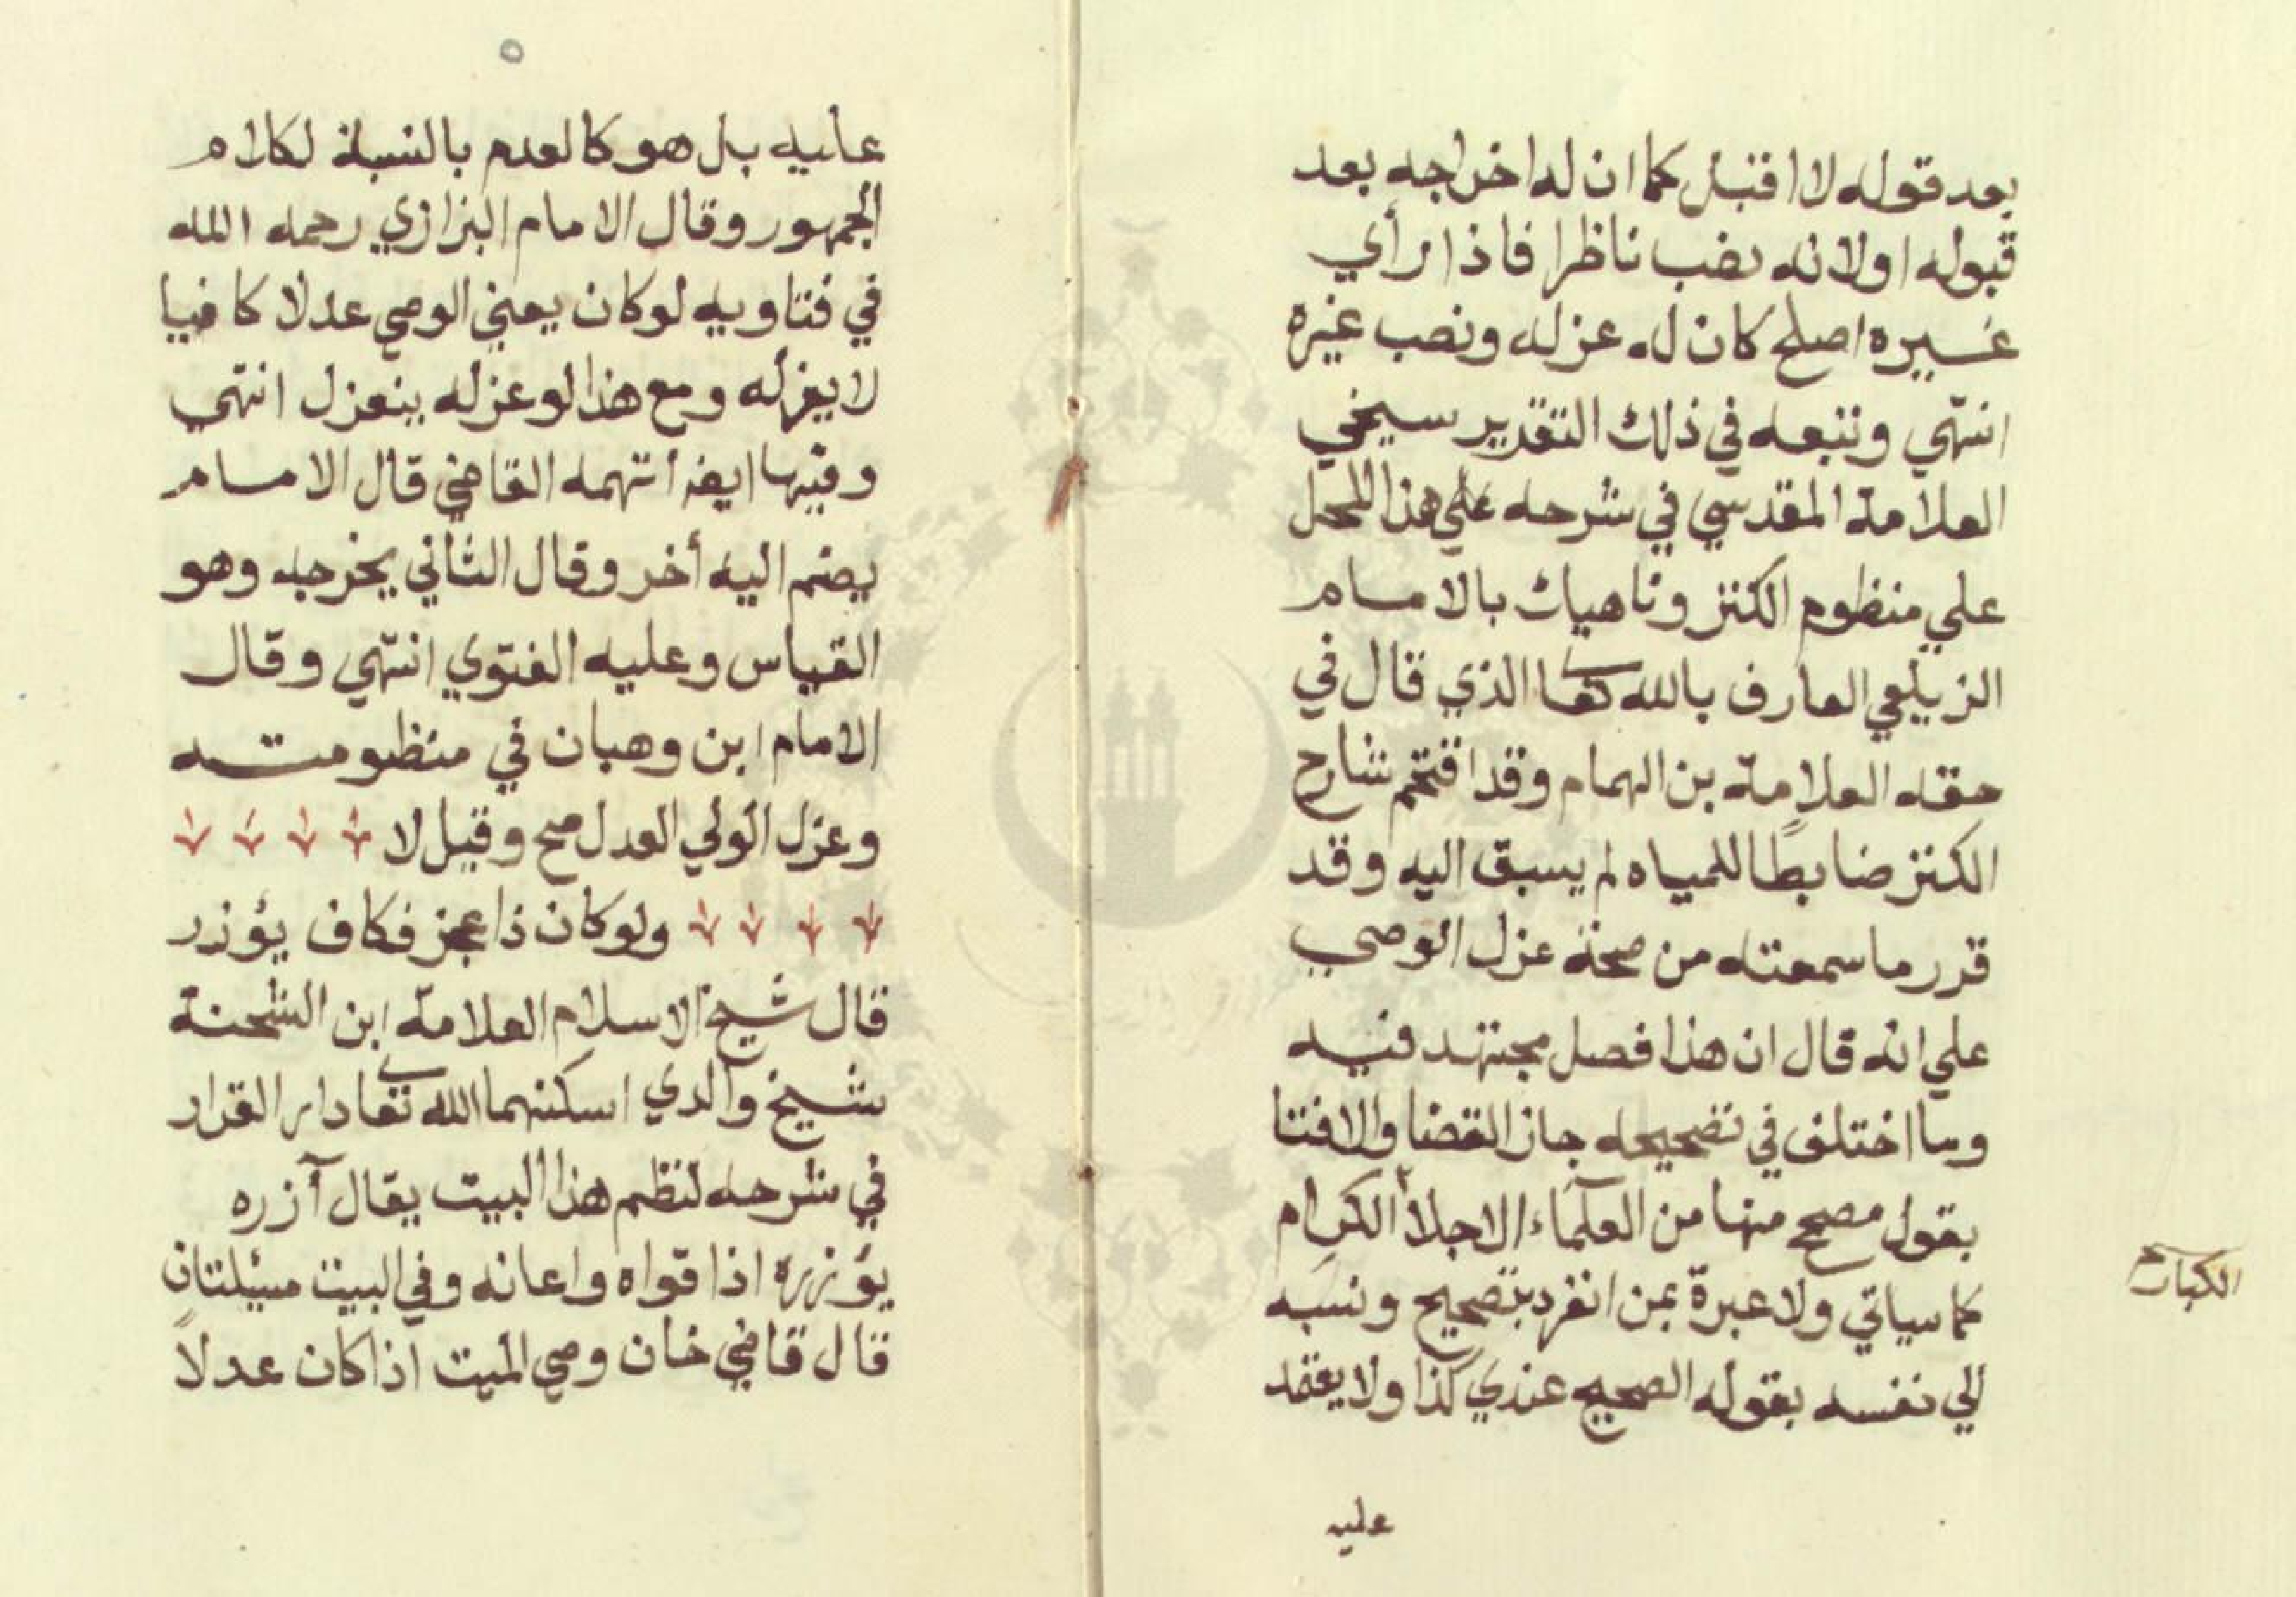 بعد قوله لا اقبل كما ان له اخراجه بعد
قبوله اولا لانه نصب ناظرا فاذا رأي
غيره اصلح كان له عزله ونصب غيره
انتهي وتبعه في ذلك التقرير سيخي
العلامة المقدسي في شرحه علي هذا المحل
علي منظوم الكنز وناهيك بالامام
الزيلعي العارف بالله تعا الذي قال في
حقه العلامة بن الهمام وقد اقتحم شارح
الكنز ضابطًا للمياه لم يسبق اليه وقد
قرر ما سمعته من صحة عزل الوصي
علي انه قال ان هذا فصل مجتهد فيه
وما اختلف في تصحيحه جاز القضا والافتا
بقول مصحح منها من العلماء الاجلا الكرام
كما سياتي ولا عبرة بمن انفرد بتصحيح ونسبه
الي نفسه بقوله الصحيح عندي كذا ولا يعتمد
عليه
الكبار
٥
عليه بل هو كالعدم بالنسبة لكلام
الجمهور وقال الامام البزازي رحمه الله
في فتاويه لوكان يعني الوصي عدلا كافيا
لا يعزله ومع هذا لو عزله ينعزل انتهي
وفيها ايضا اتهمه القاضي قال الامام
يضم اليه أخر وقال الثاني يخرجه وهو
القياس وعليه الفتوي انتهي وقال
الامام ابن وهبان في منظومته
وعزل الولي العدل صح وقيل لا
ولو كان ذا عجز فكاف يؤزر
قال شيخ الاسلام العلامة ابن الشحنة
شيخ والدي اسكنهما الله تعا دار القرار
في شرحه لنظم هذا البيت يقال آزره
يؤزره اذا قواه واعانه وفي البيت مسئلتان
قال قاضي خان وصي الميت اذا كان عدلاً